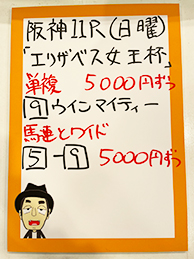 阪神11R(日曜)
「エリザベス女王杯」
単複 5000円ずつ
9 ウインマイティー
馬連とワイド
5-9 5000円ずつ